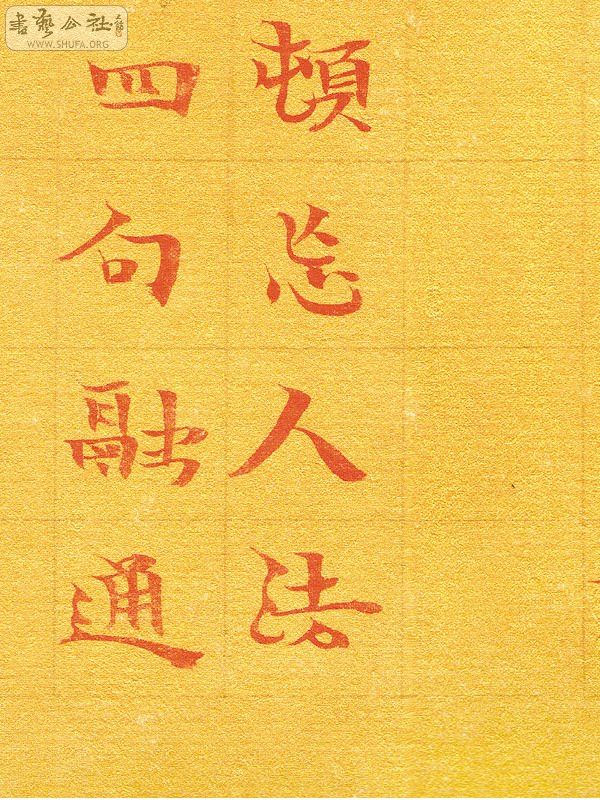 頓忘人法
四句融通
書藝公社
WWW.SHUFA.ORG